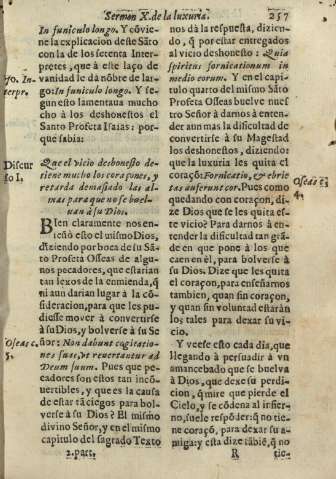 Sermon X. de la luxuria. 257
In funiculo longo. Y cōvie-
ne la explicacion deste Sāto
con la de los setenta Inter-
pretes, que à este laço de
vanidad le dā nōbre de lar-
go: In funiculo longo. Y se-
gun esto lamentaua mucho
cho à los deshonestos el
Santo Profeta Isaias: por-
que sabia:
fo. In-
terpr.
Discur
so I.
Que el vicio deshonesto de-
tiene mucho los coraçones, y
retarda demasiado las al-
mas para que no se buel-
uan à su Dios.
BIen claramente nos en-
señò esto el mismo Dios,
diziendo por boca de su Sā-
to Profeta Osseas de algu-
nos pecadores, que estarian
tan lexos de la enmienda, q̄
ni aun darian lugar à la cō-
sideracion, para que les pu-
diesse mover à convertirse
à su Dios, y bolverse à su Se
ñor: Non dabunt cogitatio-
nes suas, vt reuertantur ad
Deum suum. Pues que pe-
cadores son estos tan incō-
uertibles, y que es la causa
de estar tā ciegos para bol-
verse à su Dios? El mismo
divino Señor, y en el mismo
capitulo del sagrado Texto
Oseas c.
5.
2. part.
nos dà la respuesta, dizien-
do, q̄ por estar entregados
al vicio deshonesto: Quia
spiritus fornicationum in
medio eorum. Y en el capi-
tulo quarto del mismo Sāto
Profeta Osseas buelve nues
tro Señor à darnos à enten-
der aun mas la dificultad de
convertirse à su Magestad
los deshonestos, diziendo:
que la luxuria les quita el
coraçō: Fornicatio, & ebrie
tas auferunt cor. Pues como
quedando con coraçon, di-
ze Dios que se les quita es-
te vicio? Para darnos à en-
tender la dificultad tan grā-
de en que pone à los que
caen en èl, para bolverse à
su Dios. Dize que les quita
el coraçon, para enseñarnos
tambien, quan sin coraçon,
y quan sin voluntad estaràn
los tales para dexar su vi-
cio.
Y veese esto cada dia, que
llegando à persuadir à vn
amancebado que se buelva
à Dios, que dexe su perdi-
cion, q̄ mire que pierde el
Cielo, y se cōdena al infier-
no, suele respōder: q̄ no tie-
ne coraçō, para dexar su a-
miga: y esta dize tābiē, q̄ no
Oseas c.
4.
R tie-